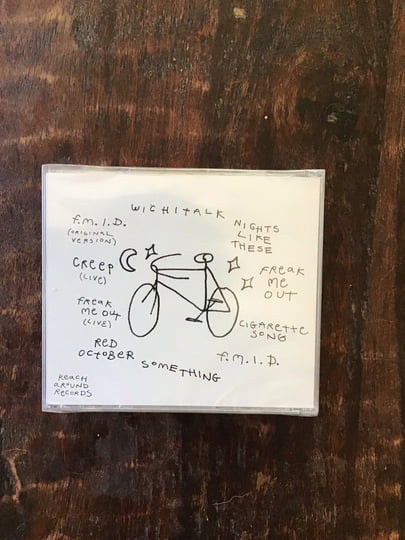 WICHITALK
NIGHTS
LIKE
THESE
FREAK
ME
OUT
CIGARETTE
SONG
F.M.I.D.
SOMETHING
RED
OCTOBER
FREAK
ME OUT
(LIVE)
CREEP
(LIVE)
F.M.I.D.
(ORIGINAL
VERSION)
REACH
AROUND
RECORDS